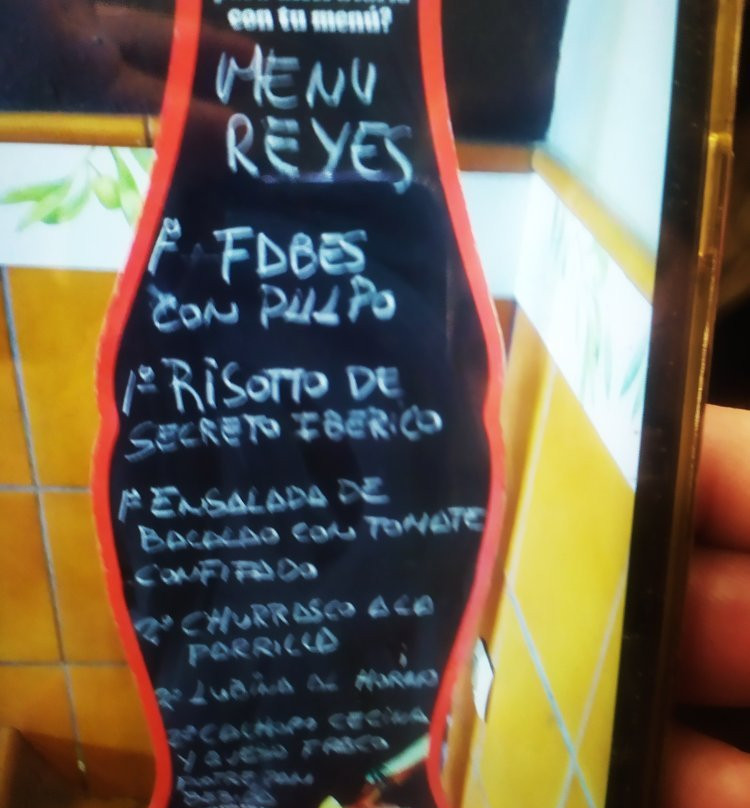 con tu menú?
MENU
REYES
1º FABES
CON PULPO
1º RISOTTO DE
SECRETO IBERICO
1º ENSALADA DE
BACALAO CON TOMATE
CONFITADO
2º CHURRASCO A LA
PARRILLA
2º LUBINA AL HORNO
2º CACHOPO CECINA
Y QUESO FRESCO
POSTRE PAN
BEBIDA